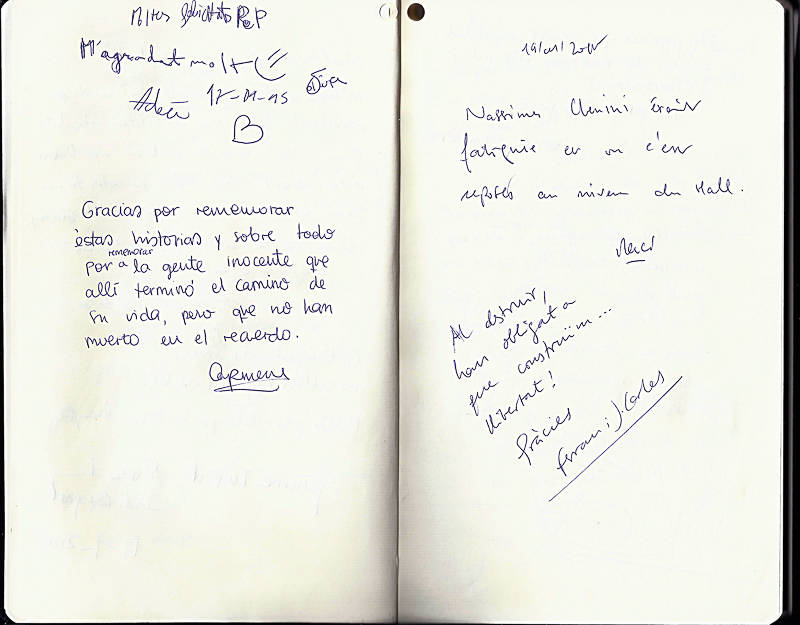 Moltes felicitats PoP
M'agradat molt
Adeu 17-11-15
Gracias por rememorar
estas historias y sobre todo
por rememorar a la gente inocente que
allí terminó el camino de
su vida, pero que no han
muerto en el recuerdo.
Carmen
19/01/201
Nassima
fatiguée et on c'est
reposés au niveau du Hall.
Merci
Al destruir,
han obligat a
que construïm...
llibertat!
Gràcies
Ferran i J. Carles